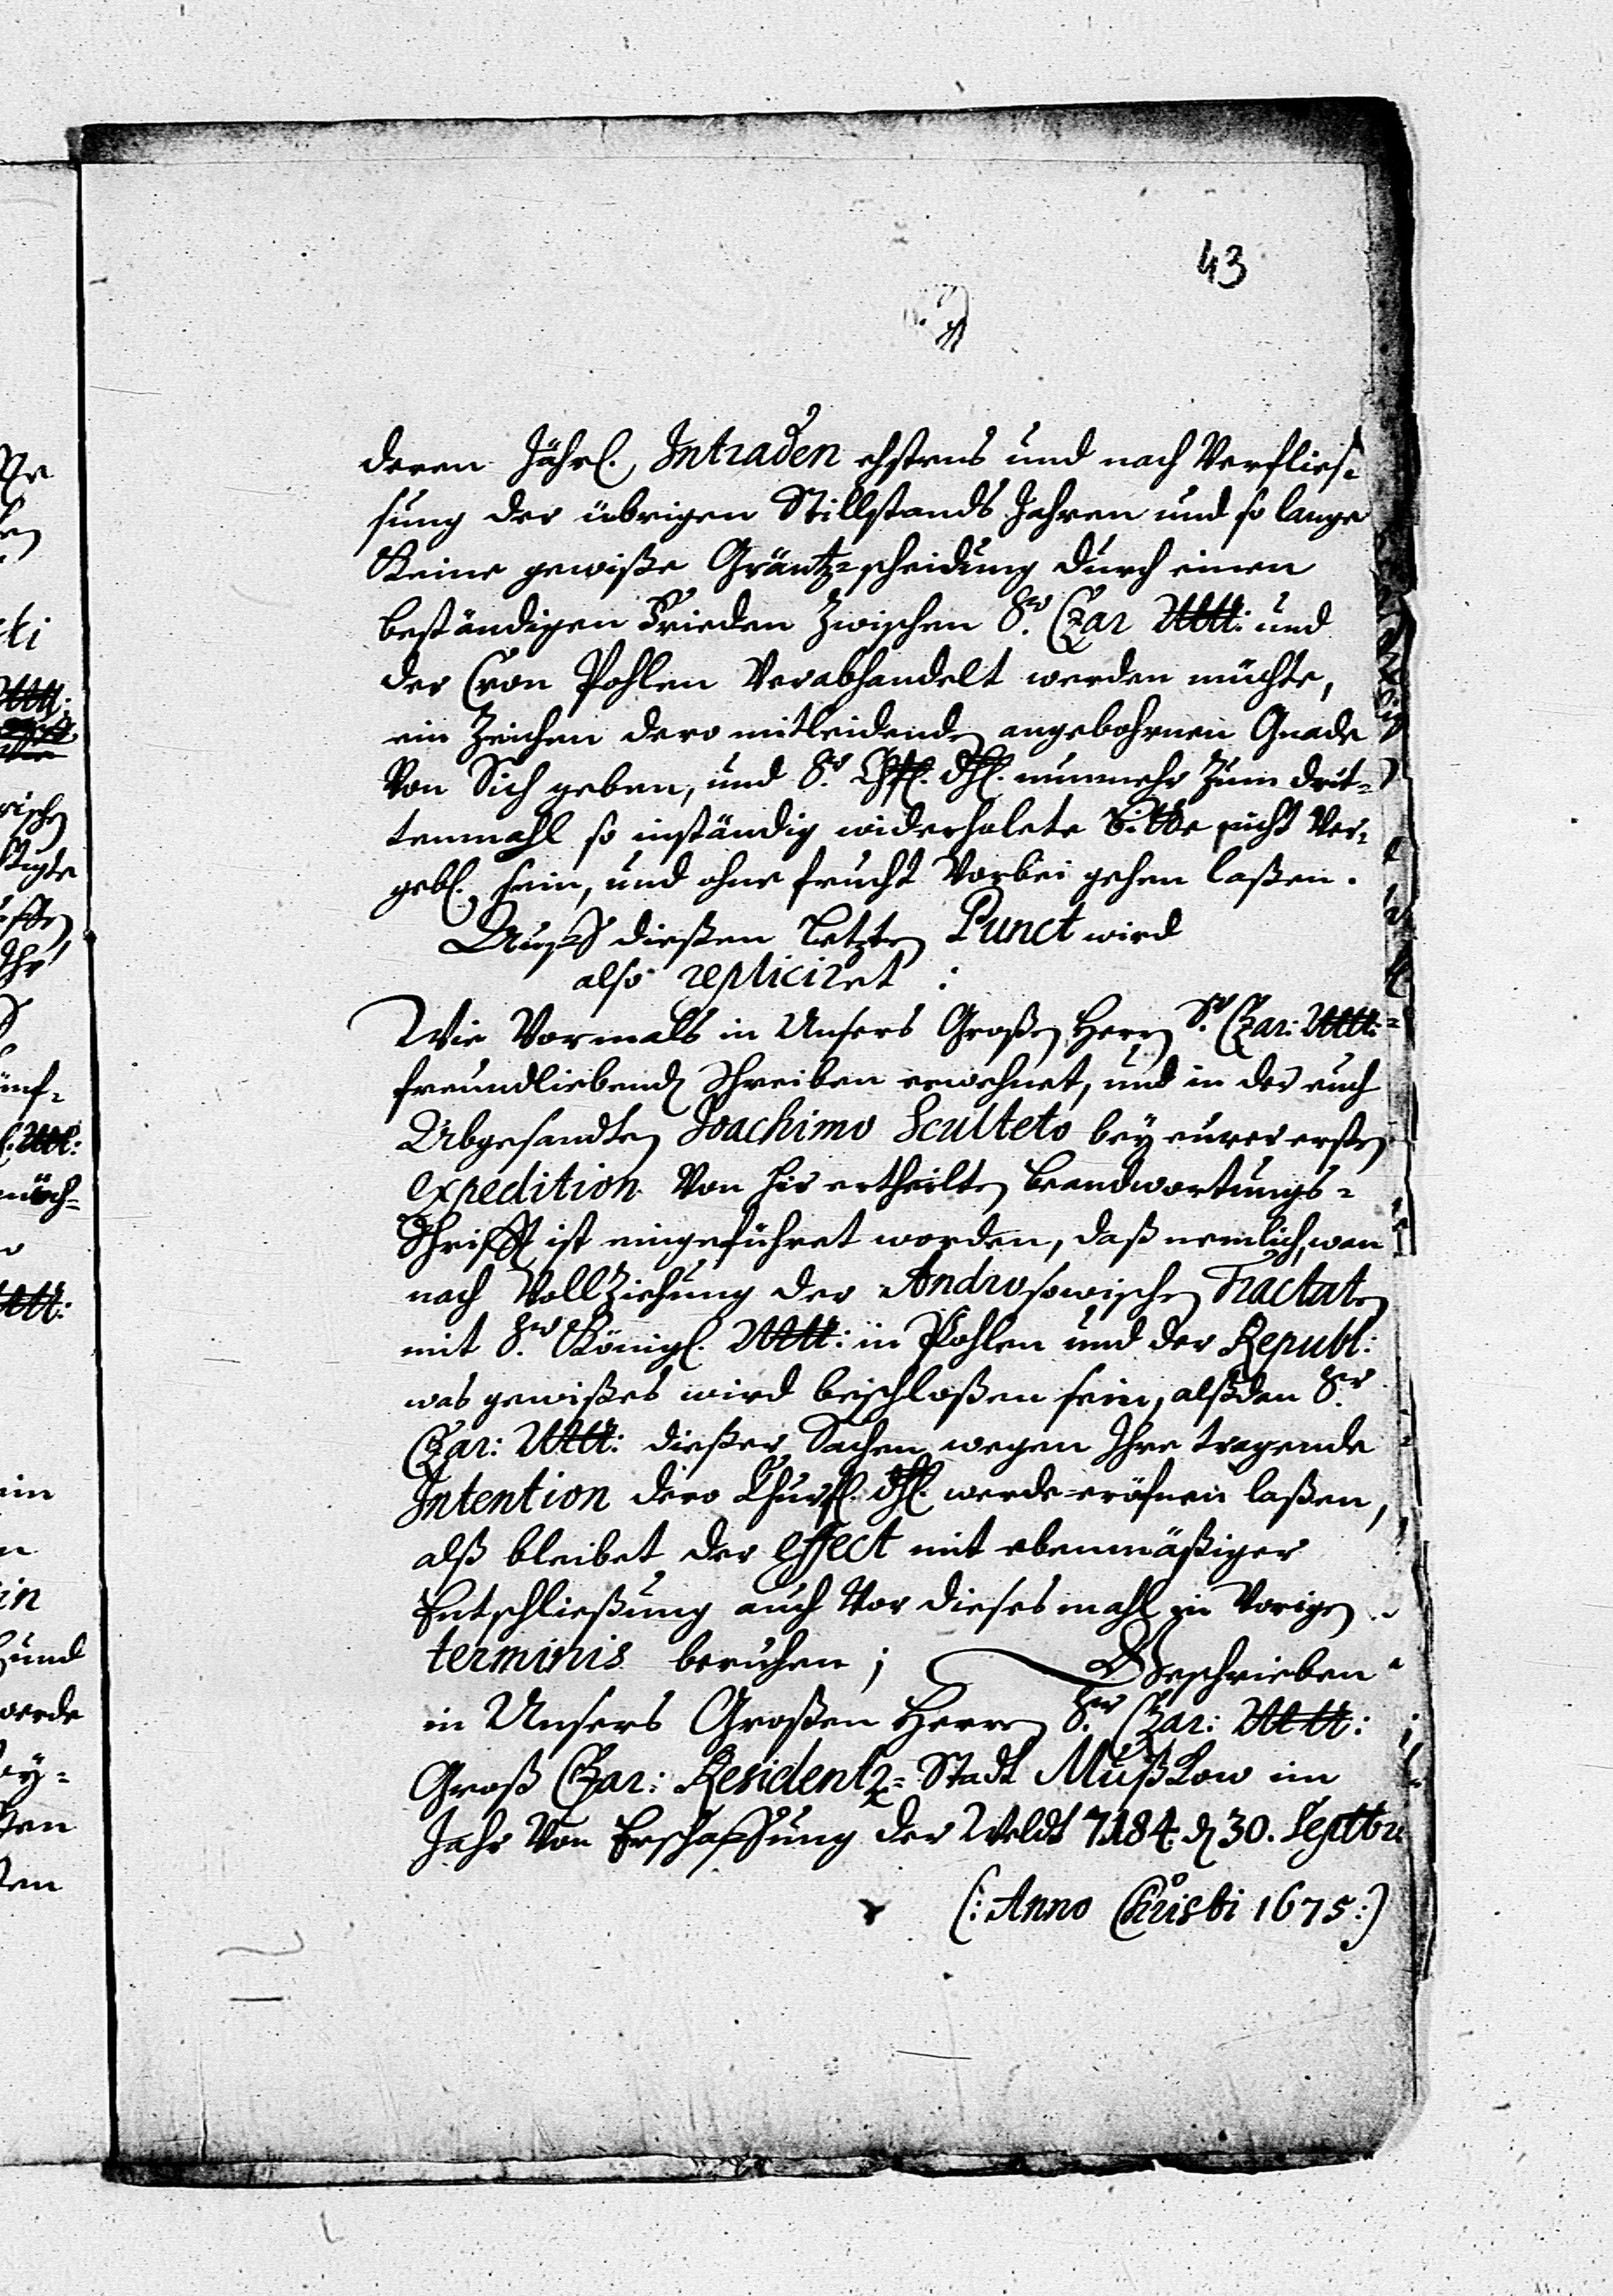 43
deren Jährl. Intraden ehstens und nach Verflies=
sung der übrigen Stillstands Jahren und so lange
Keine gewiße Gräntz=scheidung durch einen
beständigen Frieden Zwischen Sr. Czar Mtt: und
der Cron Pohlen Verabhandelt werden müchte,
ein Zeichen dero mitleidenden angebohrnen Gnade
Von Sich geben, und Sr. Chfl. Dhl. nunmehr Zum drit=
tenmahl so inständig widerholete Bitte nicht Ver=
gebl. sein, und ohne frucht Vorbei gehen laßen.
Auff dießen Letzten Punct wird
also repliciret :
Wie Vormals in Unsers Großen Herrn Sr. Czar: Mtt:
freundliebenden Schreiben erwehnet, und in der euch
Abgesandten Joachimo Sculteto bey eurer ersten
expedition Von hir ertheilten beandwortungs=
Schrifft ist eingeführet worden, daß nemlich, wan
nach Vollziehung der Androsowischen Tractaten
mit Sr. Königl. Mtt: in Pohlen und der Republ:
was gewißes wird beschloßen sein, alßdan Sr.
Czar: Mtt: dießer Sachen wegen Ihre tragende
Intention dero Churfl. Dhl. werde eröfnen laßen,
alß bleibet der effect mit ebenmäßiger
Entschließung auch Vor dieses mahl in Vorigen
terminis beruhen; Geschrieben
in Unsers Großen Herrn Sr. Czar: Mtt:
Groß Czar: Residentz=Stadt Mußkow im
Jahr Von Erschaffung der Weldt 7184 den 30. Septbr
(: Anno Christi 1675 :)